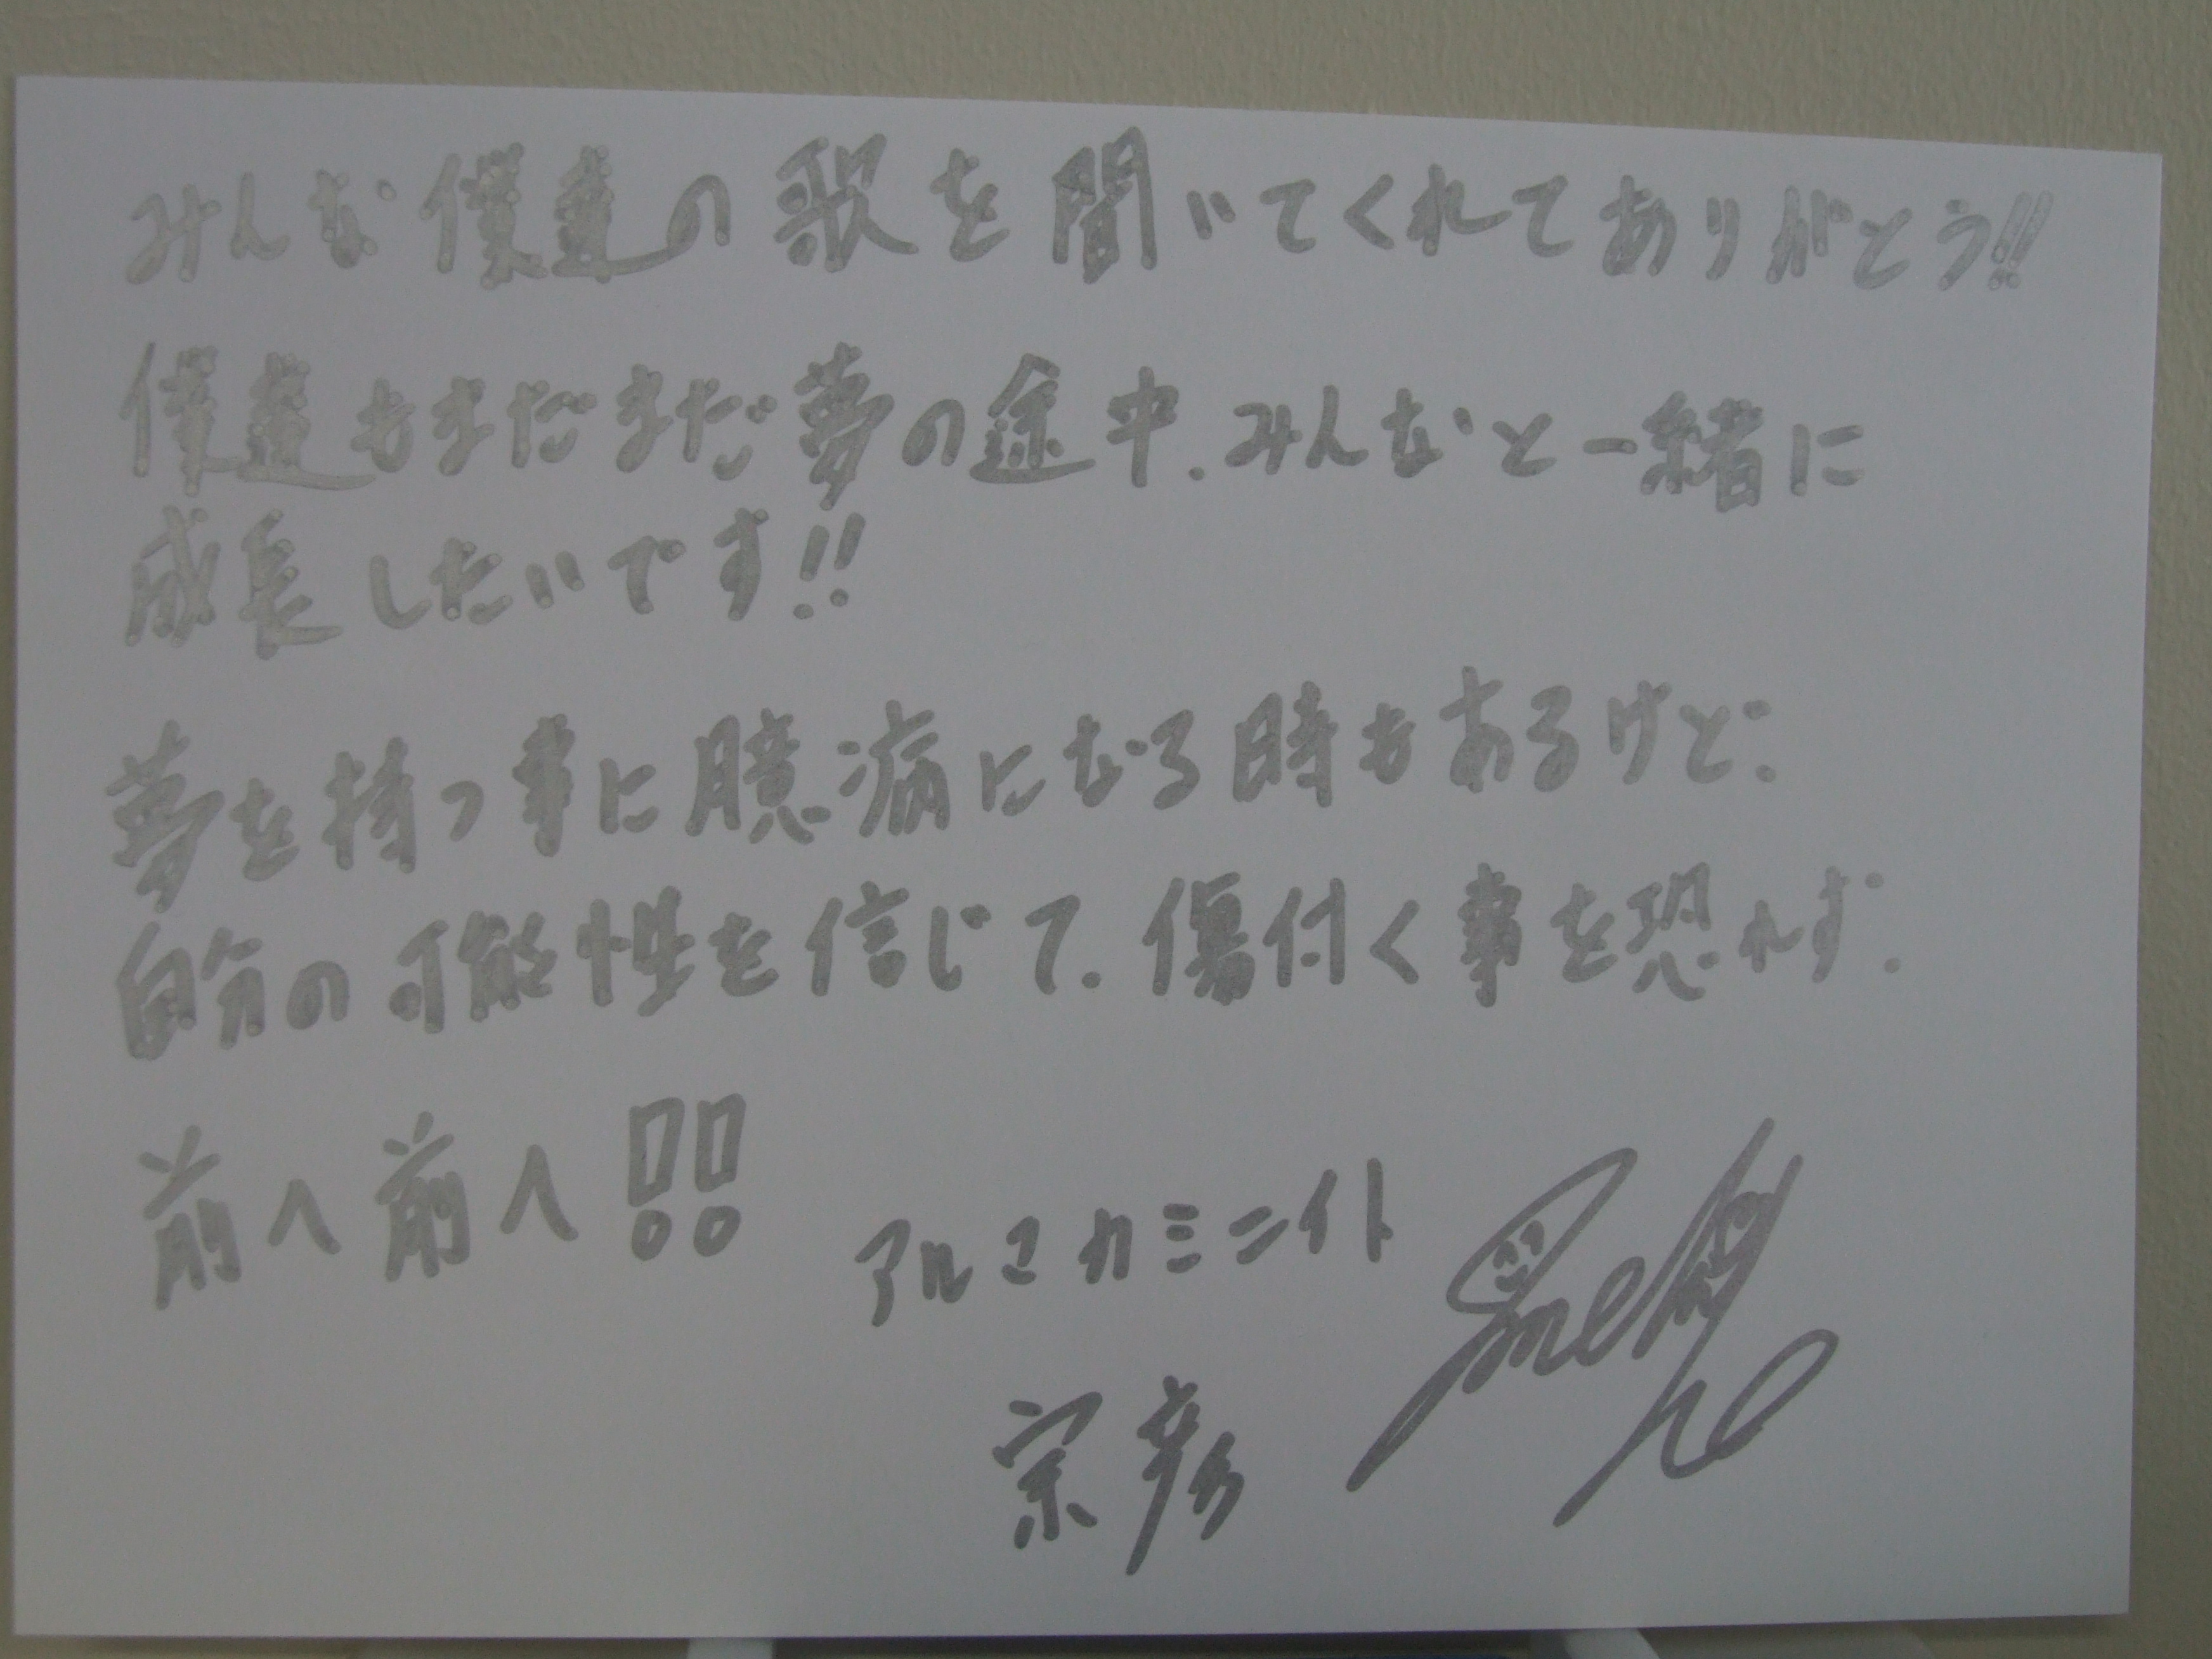 みんな僕達の歌を聞いてくれてありがとう!!
僕達もまだまだ夢の途中、みんなと一緒に
成長したいです!!
夢を持つ事に臆病になる時もあるけど、
自分の可能性を信じて、傷付く事を恐れず、
前へ前へ!!
アルマカミニイト
宗彦